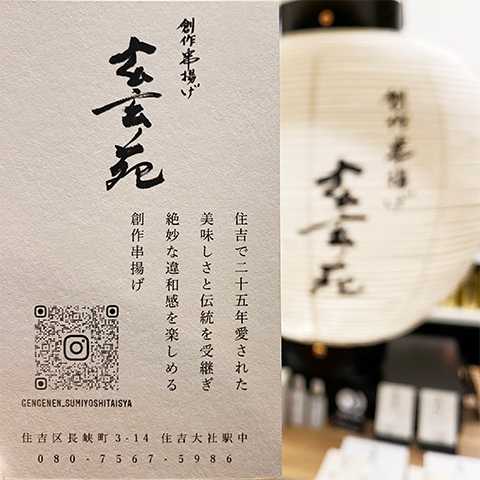 創作串揚げ
玄玄苑
住吉で二十五年愛された
美味しさと伝統を受継ぎ
絶妙な違和感を楽しめる
創作串揚げ
GENGENEN_SUMIYOSHITAISYA
住吉区長峡町3-14 住吉大社駅中
080-7567-5986
創作串揚げ
玄玄苑